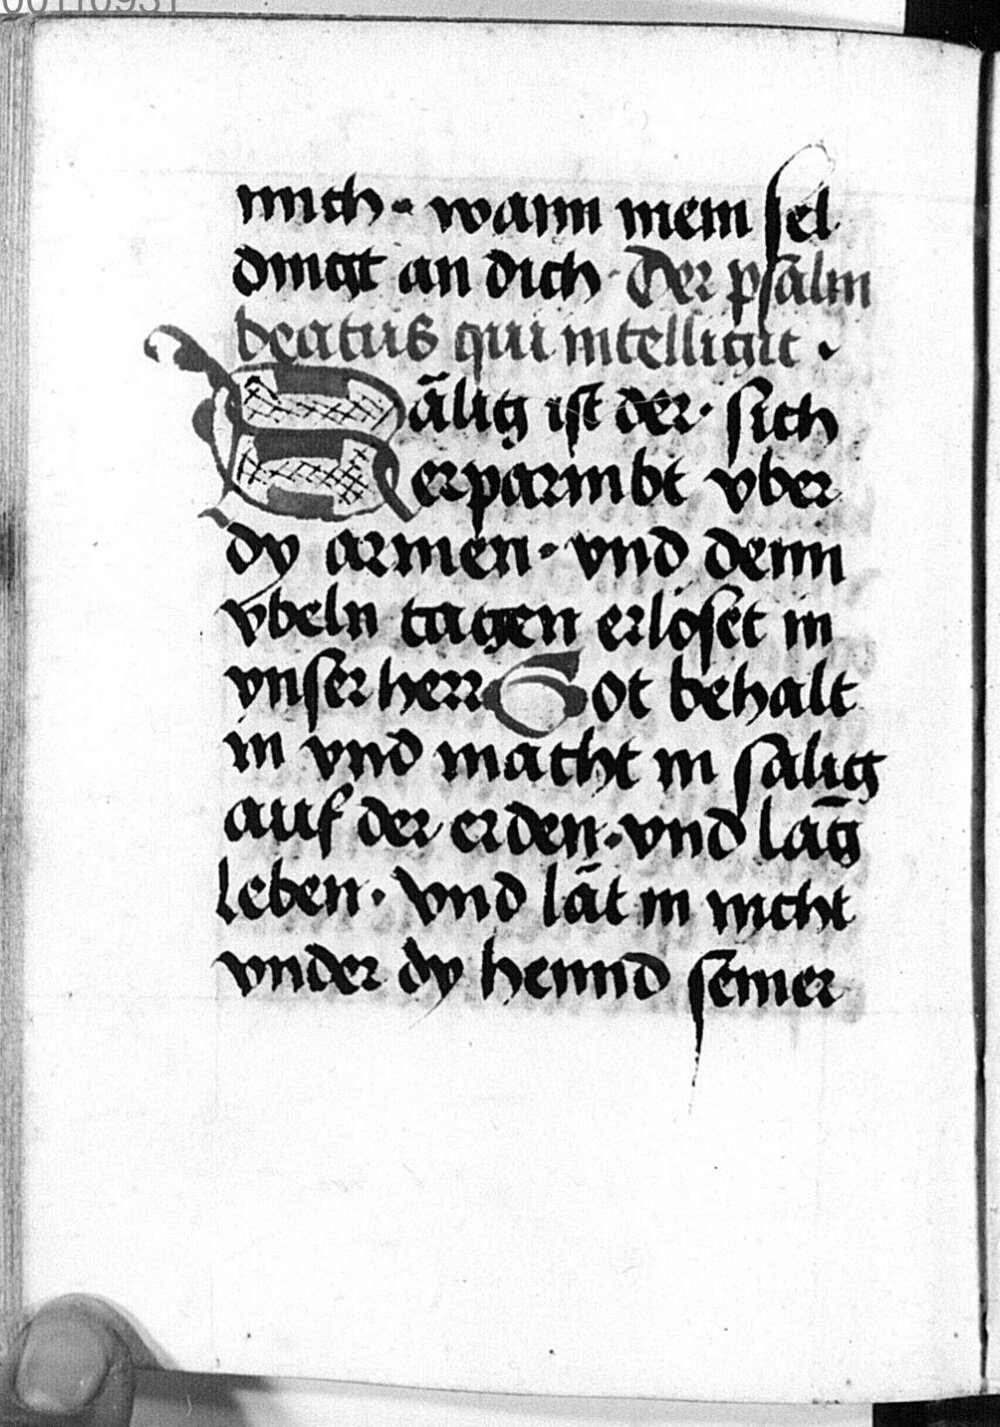 mich · wann mein sel
dingt an dich · Der psalm
beatus qui intelligit ·
Sälig ist der · sich
erparmbt vber
dy armen · vnd denn
vbeln tagen erloset in
vnser herr Got behalt
in vnd macht in sälig
auf der erden · vnd lāg
leben · Vnd lät in nicht
vnder dy hennd seiner